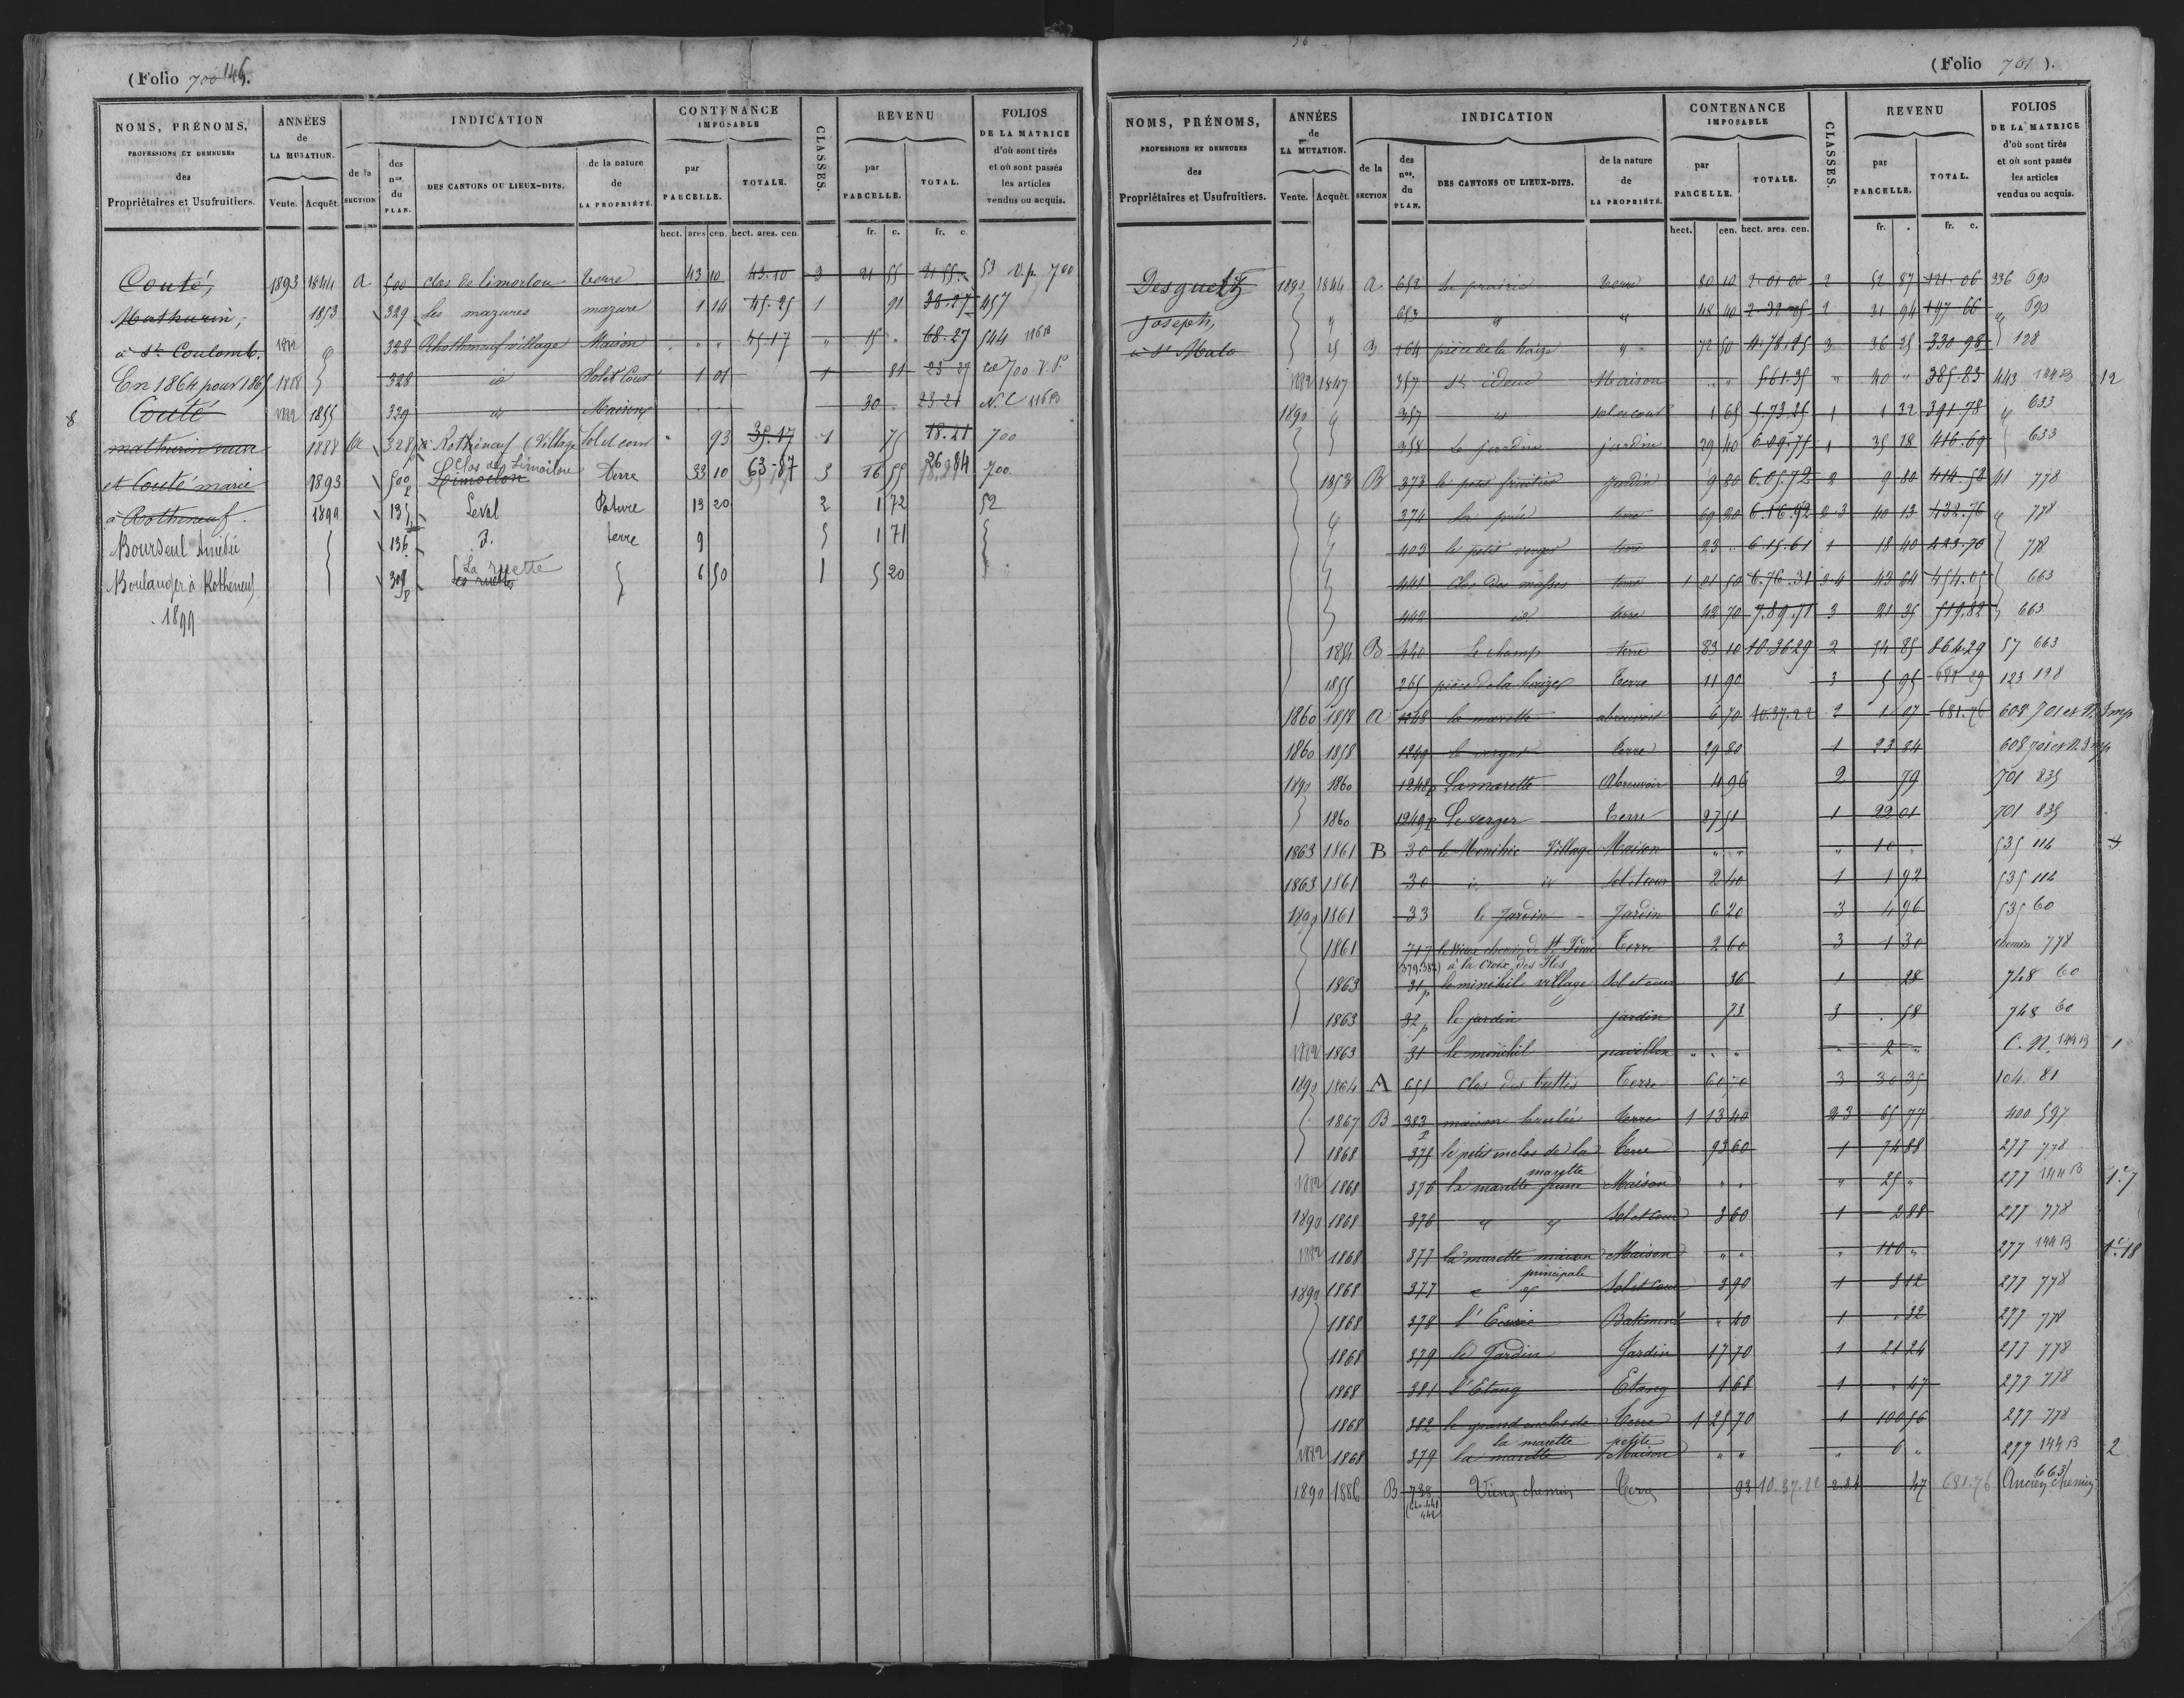 (Folio 700 146).
NOMS, PRÉNOMS,
PROFESSIONS ET DEMEURES
des
Propriétaires et Usufruitiers.
ANNÉES
de
LA MUTATION.
Vente. Acquêt.
INDICATION
de la
SECTION
des
nos.
du
PLAN.
DES CANTONS OU LIEUX-DITS.
de la nature
de
LA PROPRIÉTÉ.
CONTENANCE
IMPOSABLE
par
PARCELLE.
TOTALE.
hect. ares cen. hect. ares. cen.
CLASSES.
REVENU
par
PARCELLE.
TOTAL.
fr. c. fr. c.
FOLIOS
DE LA MATRICE
d'où sont tirés
et où sont passés
les articles
vendus ou acquis.
Couté, 1893 1844 a 500 clos de limorlou terre 43 10 43.10 3 21 55 21 55 53 v.p 700
Mathurin, 1853 329 Les mazures mazure 1 14 1 91 457
à St. Coulomb. 328 Rhothineuf village Maison 15 68.27 544 116B
En 1864 pour 1865 328 id Sol et Cour 1 01 1 81
8 Couté 1882 1855 329 id Maison 30 N.C 116B
mathurin 1888 a 328p Rothineuf (Village Sol et cour 93 35.17 1 75 18.21 700
et Couté marie 1893 500p Clos de Limoilou terre 33 10 63-87 3 16 55 26 84 700
à Rotheneuf. 1899 135 Leval Pature 13 20 2 1 72 52
Bourseul Amédée 136 d. terre 9 5 1 71
Boulanger à Rotheneuf La ruette 6 50 1 5 20
1899
(Folio 701).
NOMS, PRÉNOMS,
PROFESSIONS ET DEMEURES
des
Propriétaires et Usufruitiers.
ANNÉES
de
LA MUTATION.
Vente. Acquêt.
INDICATION
de la
SECTION
des
nos.
du
PLAN.
DES CANTONS OU LIEUX-DITS.
de la nature
de
LA PROPRIÉTÉ.
CONTENANCE
IMPOSABLE
par
PARCELLE.
TOTALE.
hect. cen. hect. ares. cen.
CLASSES.
REVENU
par
PARCELLE.
TOTAL.
fr. fr. c.
FOLIOS
DE LA MATRICE
d'où sont tirés
et où sont passés
les articles
vendus ou acquis.
1890 1844 a 652 La prairie terre 80 10 2-01-00 2 52 87 121-06 336 690
Joseph, 653 " " 48 40 1 31 94 197 66 " 690
à St Malo 164 pièce de la haize " 72 50 4.78.25 3 36 25 330 98 128
1882 1847 357 St ideuc Maison " " 5.61.35 " 40 " 385-83 443 144B 12
1890 357 id sol et cour 1 65 5.73.25 1 1 32 391-78 633
358 le jardin jardin 29 40 6-09-75 1 35 28 416-69 633
1853 B 373 le petit fruitier jardin 9 80 6.05.72 2 9 80 414.58 41 778
374 La prée terre 69 20 2-3 40 13 432.76 778
403 le petit verger terre 23 " 6.15.61 1 18 40 423.70 778
441 clos des masses terre 1 01 50 6.76.31 3 4 43 64 454.05 663
442 id. terre 42 70 7.89.71 3 21 35 519.82 663
1854 B 440 Le champ terre 83 10 10.36.29 2 54 85 57 663
1855 265 pièce de la haize Terre 11 90 3 5 95 123 128
1860 1858 a 1248 la marette abreuvoir 6 70 10.37.22 2 1 07 681.76 608 701 et N. Imp
1860 1858 1249 le verger terre 29 80 1 23 84 608 701 et N. Imp
1890 1860 1248p La marette Abreuvoir 4 96 2 79 701 835
1860 1249p Le verger Terre 27 51 1 22 01 701 835
1863 1861 B 30 le Menihic Village Maison " " " 10 " 535 114
1863 1861 30 id id Sol et cour 2 40 1 1 92 535 114
1890 1861 33 le Jardin Jardin 6 20 3 4 96 535 60
1861 717 le vieux chemin de St Ideuc Terre 2 60 3 1 30 chemin 778
(379.382) à la croix des Iles
1863 31p le minihil village Sol et cour 36 1 28 748 60
1863 32p le jardin jardin 73 3 58 748 60
1882 1863 31 le minihil pavillon " " " " 2 " C.N. 144B 1
1890 1864 A 651 Clos des buttes Terre 60 70 3 30 35 104. 81
1867 B 383p maison brulée Terre 1 13 40 2 3 65 77 400 597
1868 375 le petit enclos de la Terre 93 60 1 74 88 277 778
marette
1882 1868 376 la marette ferme Maison " " " 25 " 277 144B 1e.7
1890 1868 376 " " Sol et Cour 3 60 1 2 88 277 778
1882 1868 377 la marette maison Maison " " " 110 " 277 144B 1e.18
principale
1890 1868 377 " " Sol et Cour 3 90 1 3 12 277 778
1868 378 l'Ecurie Batiment " 40 1 " 32 277 778
1868 379 le Jardin Jardin 17 70 1 21 24 277 778
1868 381 l'Etang Etang 1 68 1 " 47 277 778
1868 382 le grand enclos de Terre 1 25 70 1 100 56 277 778
la marette petite
1882 1868 379 la marette Maison " " " 6 " 277 144B 2
1890 1886 B 738 Vieux chemin Terre 93 10.37.22 47 681.76 Ancien chemin
663